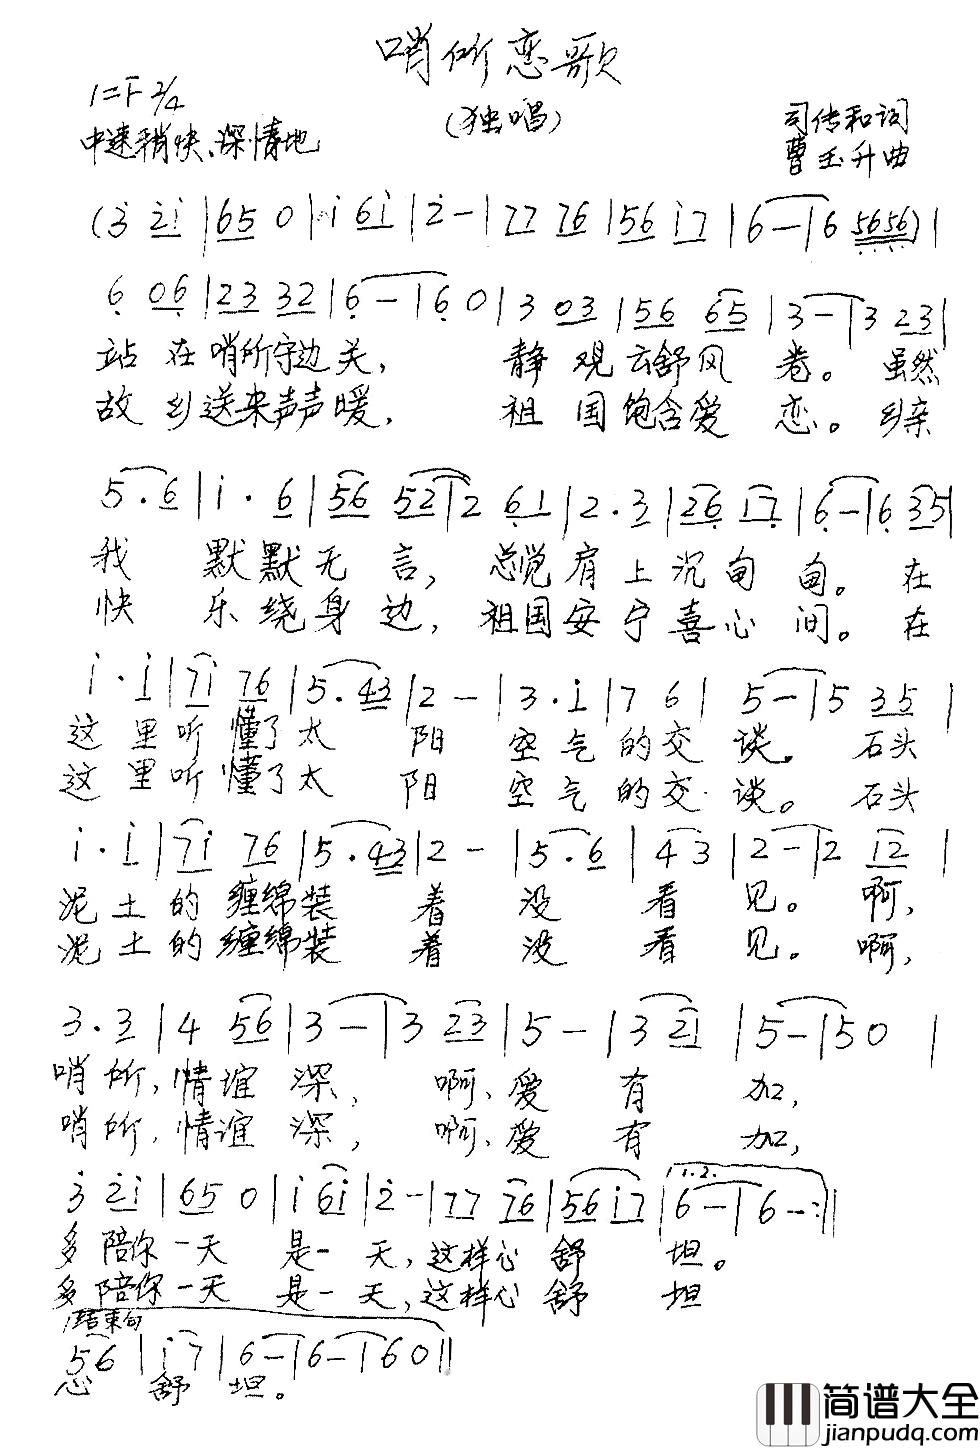 哨所恋歌
(独唱)
1=F 2/4
中速稍快、深情地
司传和词
曹玉升曲
(3̇ 2̇1̇ | 65 0 | 1̇ 61̇ | 2̇ - | 77 76 | 56 1̇7 | 6 - | 6 5656) |
6 06 | 23 32 | 6 - | 6 0 | 3 03 | 56 65 | 3 - | 3 23 |
站在哨所守边关，静观云舒风卷。虽然
故乡送来声声暖，祖国饱含爱恋。乡亲
5.6 | 1̇.6 | 56 52 | 2 61 | 2.3 | 26 17 | 6 - | 6 35 |
我默默无言，总觉肩上沉甸甸。在
快乐绕身边，祖国安宁喜心间。在
1̇.1̇ | 71̇ 76 | 5.43 | 2 - | 3.1̇ | 7 6 | 5 - | 5 35 |
这里听懂了太阳空气的交谈。石头
这里听懂了太阳空气的交谈。石头
1̇.1̇ | 71̇ 76 | 5.43 | 2 - | 5.6 | 43 | 2 - | 2 12 |
泥土的缠绵装着没看见。啊，
泥土的缠绵装着没看见。啊，
3.3 | 4 56 | 3 - | 3 23 | 5 - | 3 21 | 5 - | 50 |
哨所，情谊深，啊，爱有加，
哨所，情谊深，啊，爱有加，
1.2.
3̇ 2̇1̇ | 65 0 | 1̇ 61̇ | 2̇ - | 77 76 | 56 1̇7 | 6 - | 6 - :||
多陪你一天是一天，这样心舒坦。
多陪你一天是一天，这样心舒坦
结束句
56 | 1̇7 | 6 - | 6 - | 60 ||
心舒坦。
简谱大全
jianpudq.com